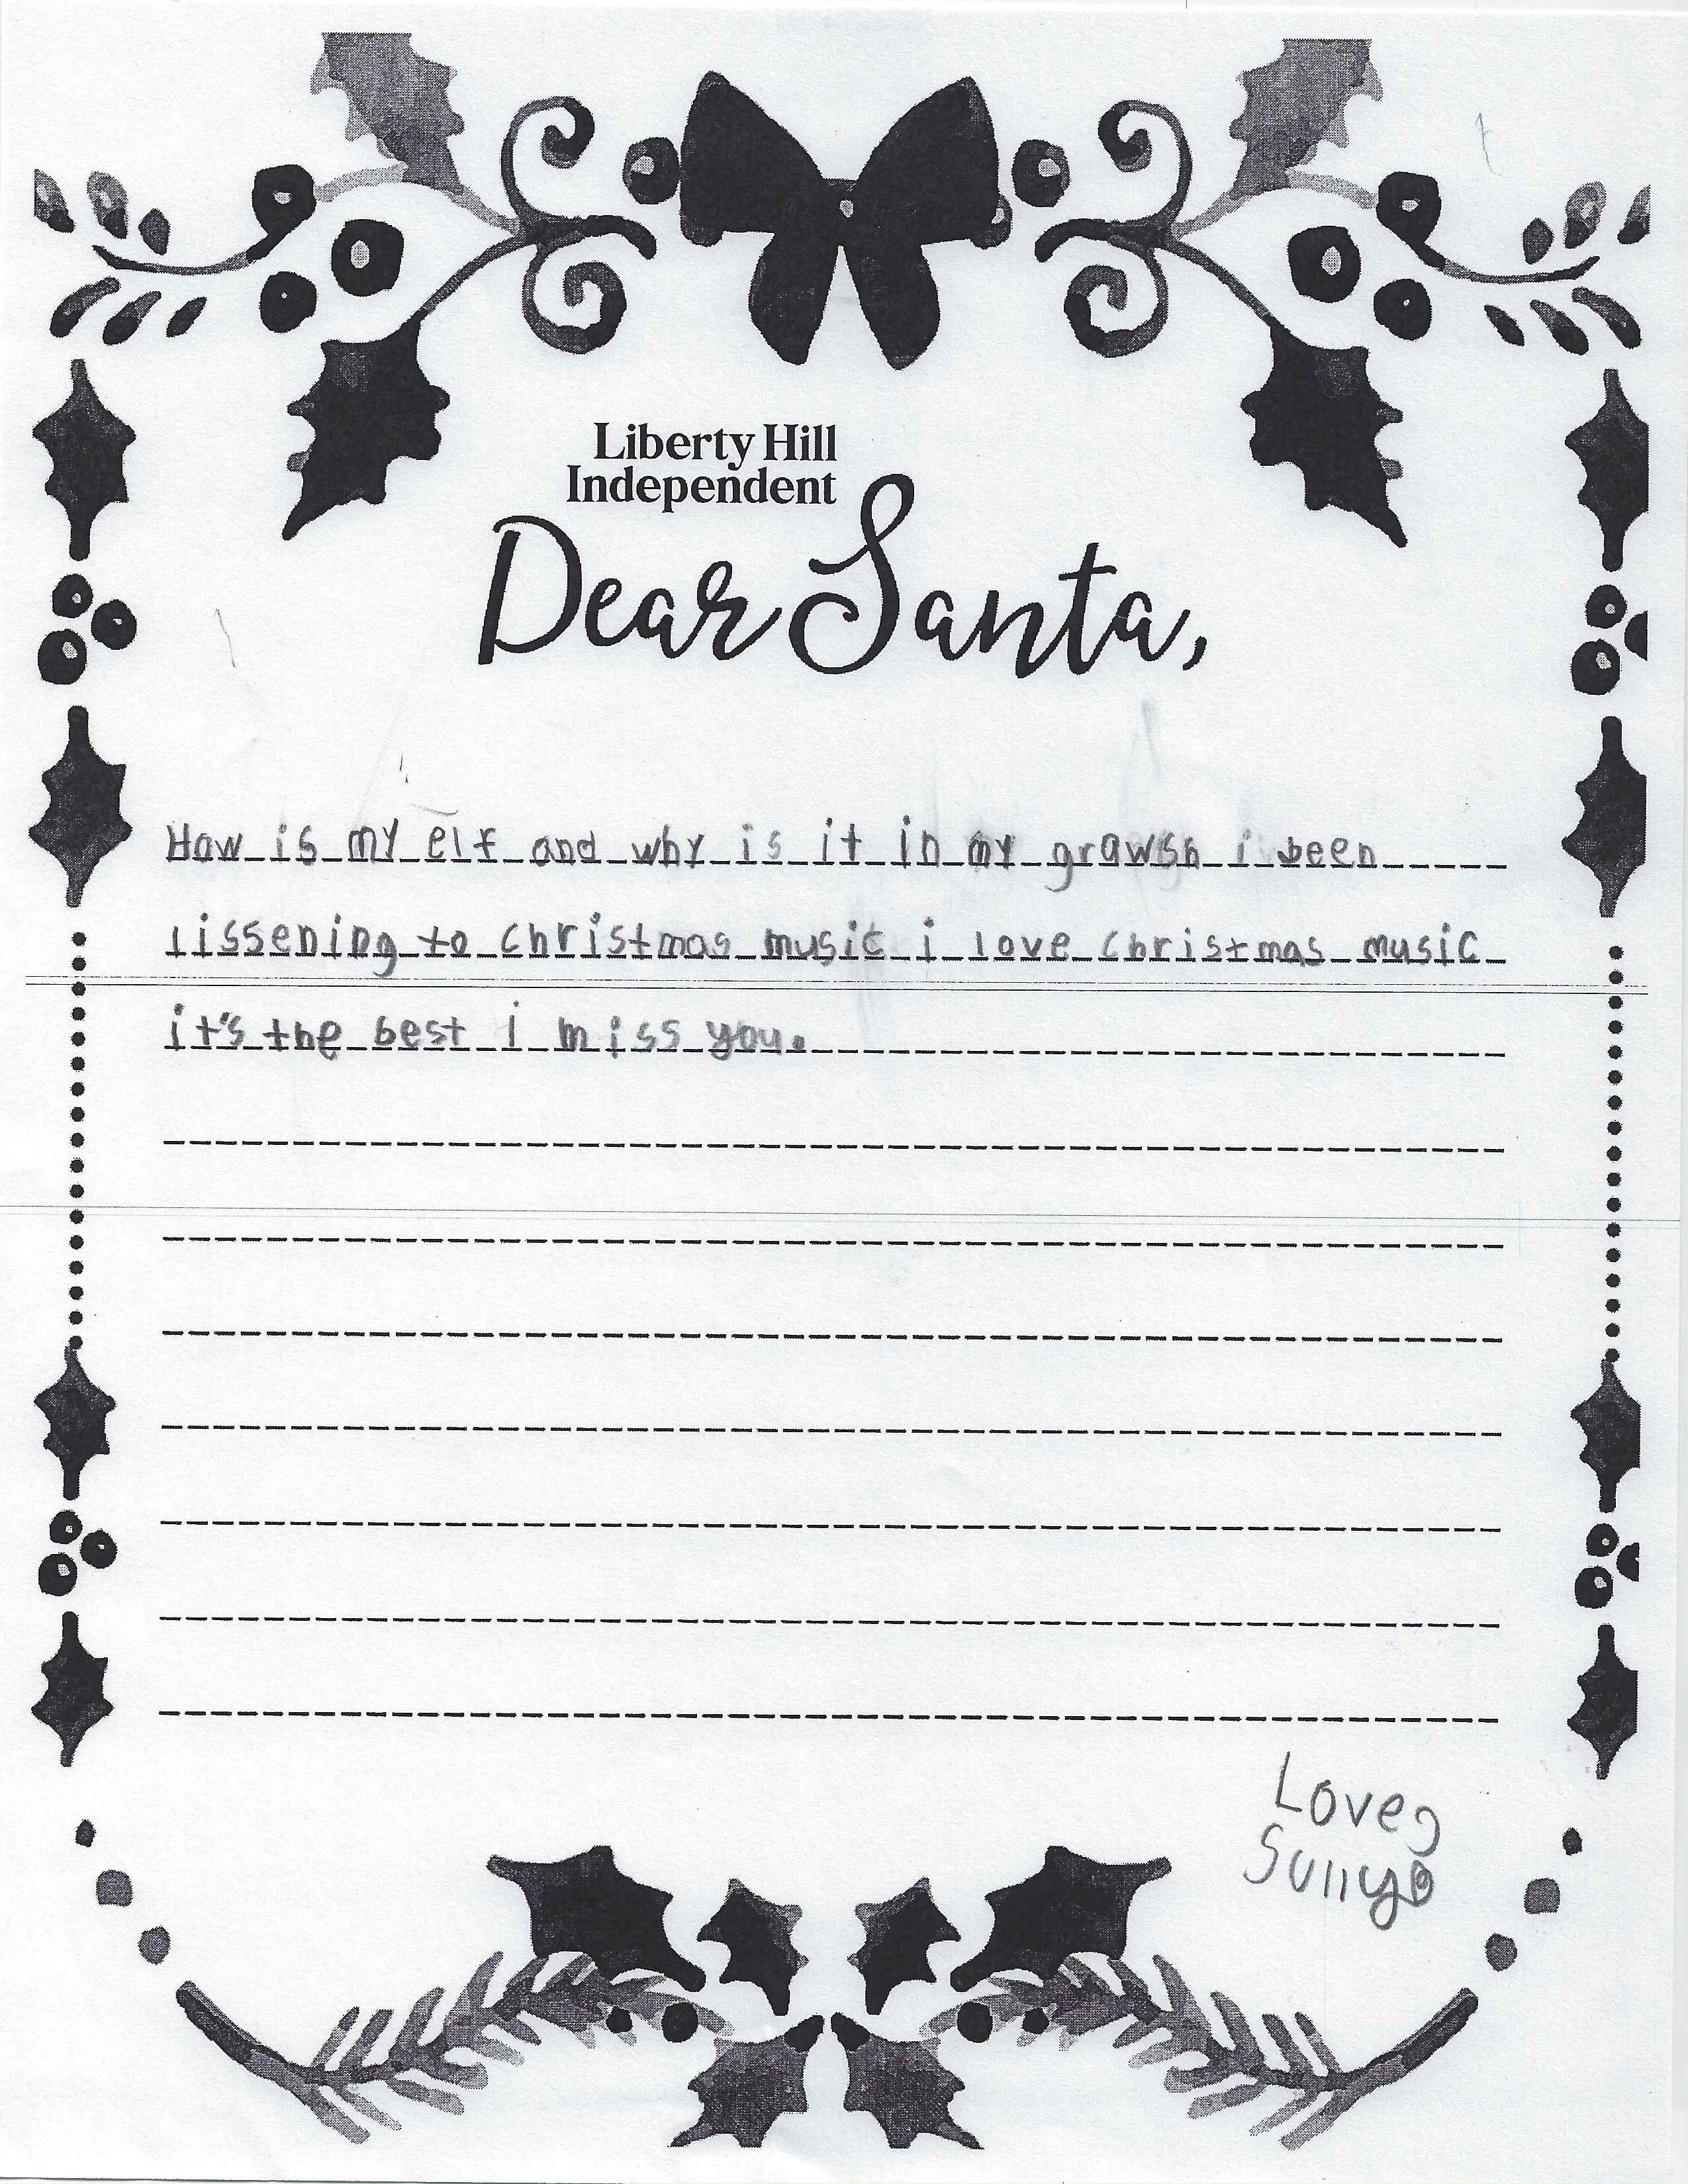 Liberty Hill
Independent
Dear Santa,
How is my elf and why is it in my grawsh i been
lissening to christmas music i love christmas music
it's the best i miss you.
Love,
Sully